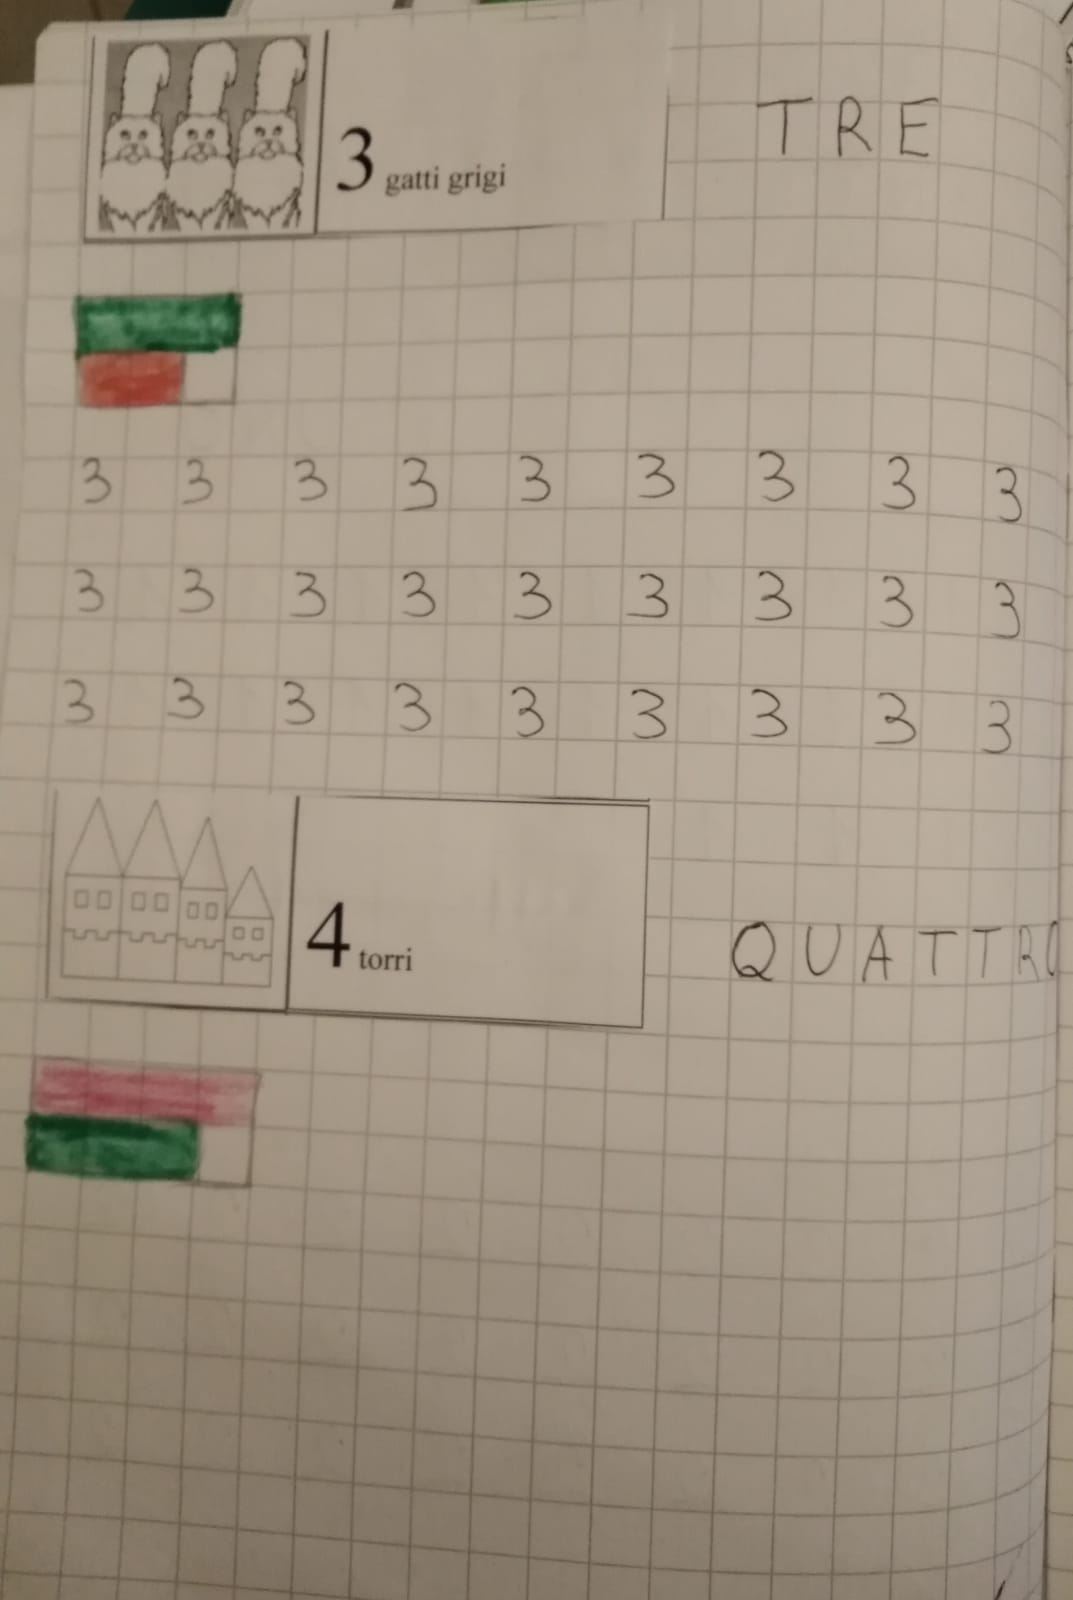 3 gatti grigi TRE
3 3 3 3 3 3 3 3 3
3 3 3 3 3 3 3 3 3
3 3 3 3 3 3 3 3 3
4 torri QUATTRO